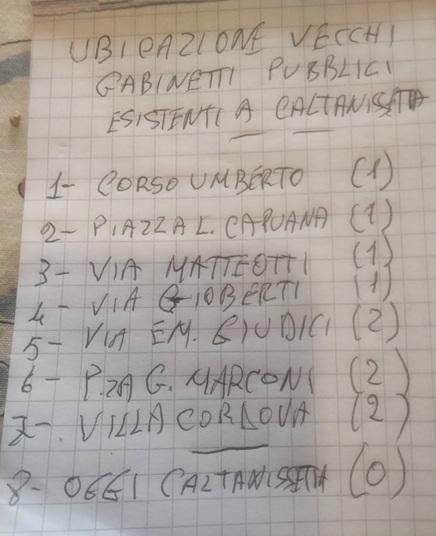 UBICAZIONE VECCHI
GABINETTI PUBBLICI
ESISTENTI A CALTANISSETTA
1- CORSO UMBERTO (1)
2- PIAZZA L. CAPUANA (1)
3- VIA MATTEOTTI (1)
4- VIA GIOBERTI (1)
5- VIA EM. GIUDICI (2)
6- P.ZA G. MARCONI (2)
7-. VILLA CORDOVA (2)
8- OGGI CALTANISSETTA (0)